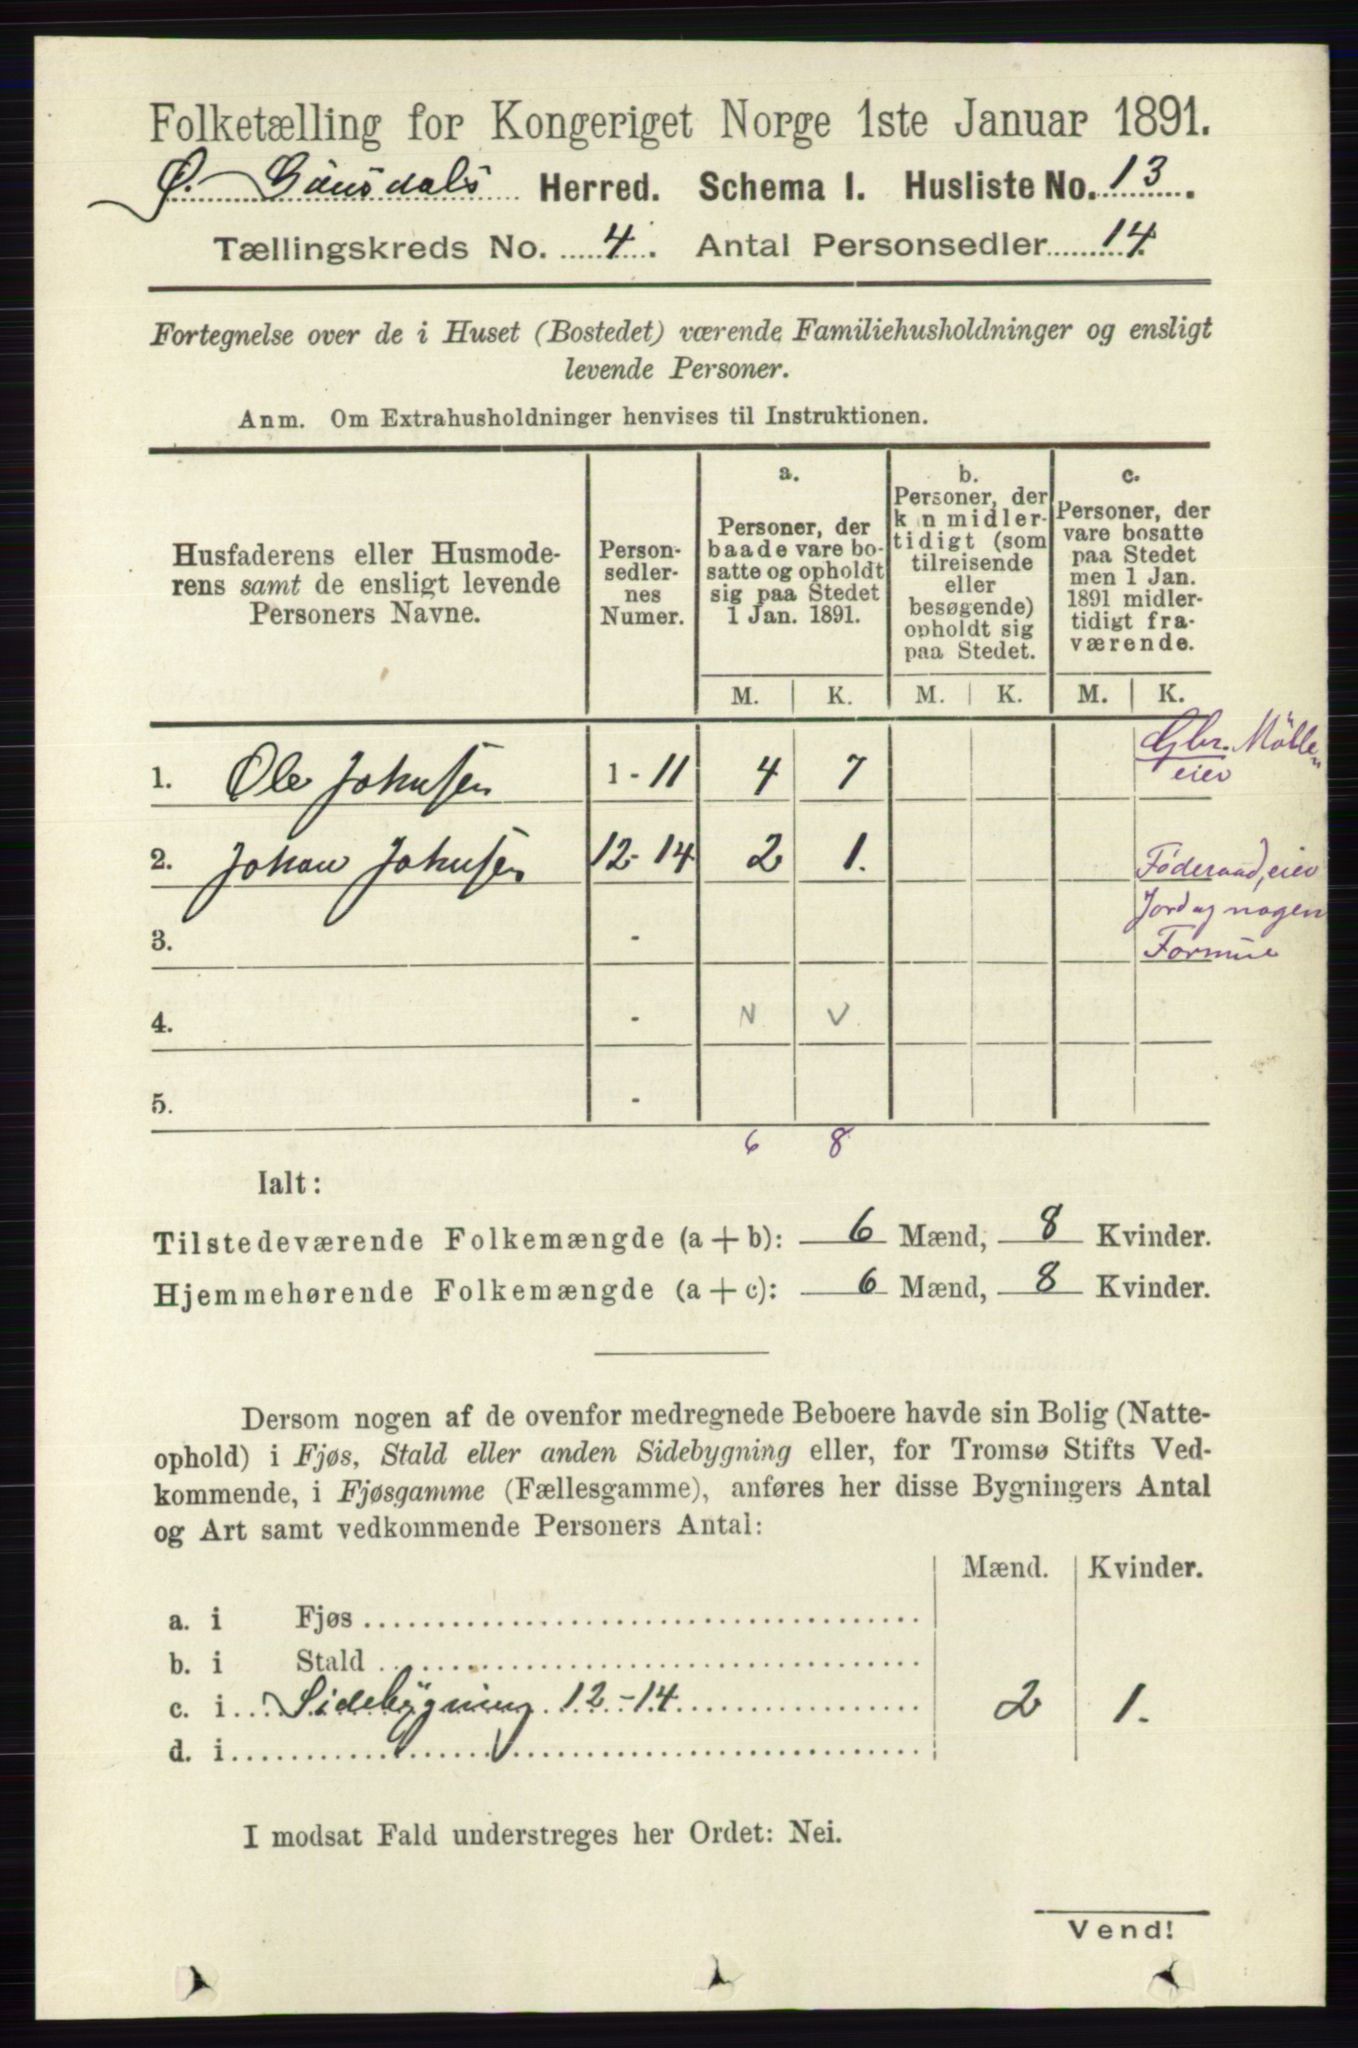 Folketælling for Kongeriget Norge 1ste Januar 1891.
Ø. Gausdals Herred. Schema I. Husliste No. 13.
Tællingskreds No. 4. Antal Personsedler 14
Fortegnelse over de i Huset (Bostedet) værende Familiehusholdninger og ensligt
levende Personer.
Anm. Om Extrahusholdninger henvises til Instruktionen.
Husfaderens eller Husmode-
rens samt de ensligt levende
Personers Navne.
Person-
sedler-
nes
Numer.
a.
Personer, der
baade vare bo-
satte og opholdt
sig paa Stedet
1 Jan. 1891.
b.
Personer, der
kun midler-
tidigt (som
tilreisende
eller
besøgende)
opholdt sig
paa Stedet.
c.
Personer, der
vare bosatte
paa Stedet
men 1 Jan.
1891 midler-
tidigt fra-
værende.
M. K. M. K. M. K.
1. Ole Johnsen 1-11 4 7 Gbr. Mölle
eier
2. Johan Johnsen 12-14 2 1. Föderaad, eier
Jord og nogen
3. - Formue
4. - N V
5. -
6 8
Ialt:
Tilstedeværende Folkemængde (a + b): 6 Mænd, 8 Kvinder.
Hjemmehørende Folkemængde (a + c): 6 Mænd, 8 Kvinder.
Dersom nogen af de ovenfor medregnede Beboere havde sin Bolig (Natte-
ophold) i Fjøs, Stald eller anden Sidebygning eller, for Tromsø Stifts Ved-
kommende, i Fjøsgamme (Fællesgamme), anføres her disse Bygningers Antal
og Art samt vedkommende Personers Antal:
Mænd. Kvinder.
a. i Fjøs
b. i Stald
c. i Sidebygning 12-14 2 1.
d. i
I modsat Fald understreges her Ordet: Nei.
Vend!